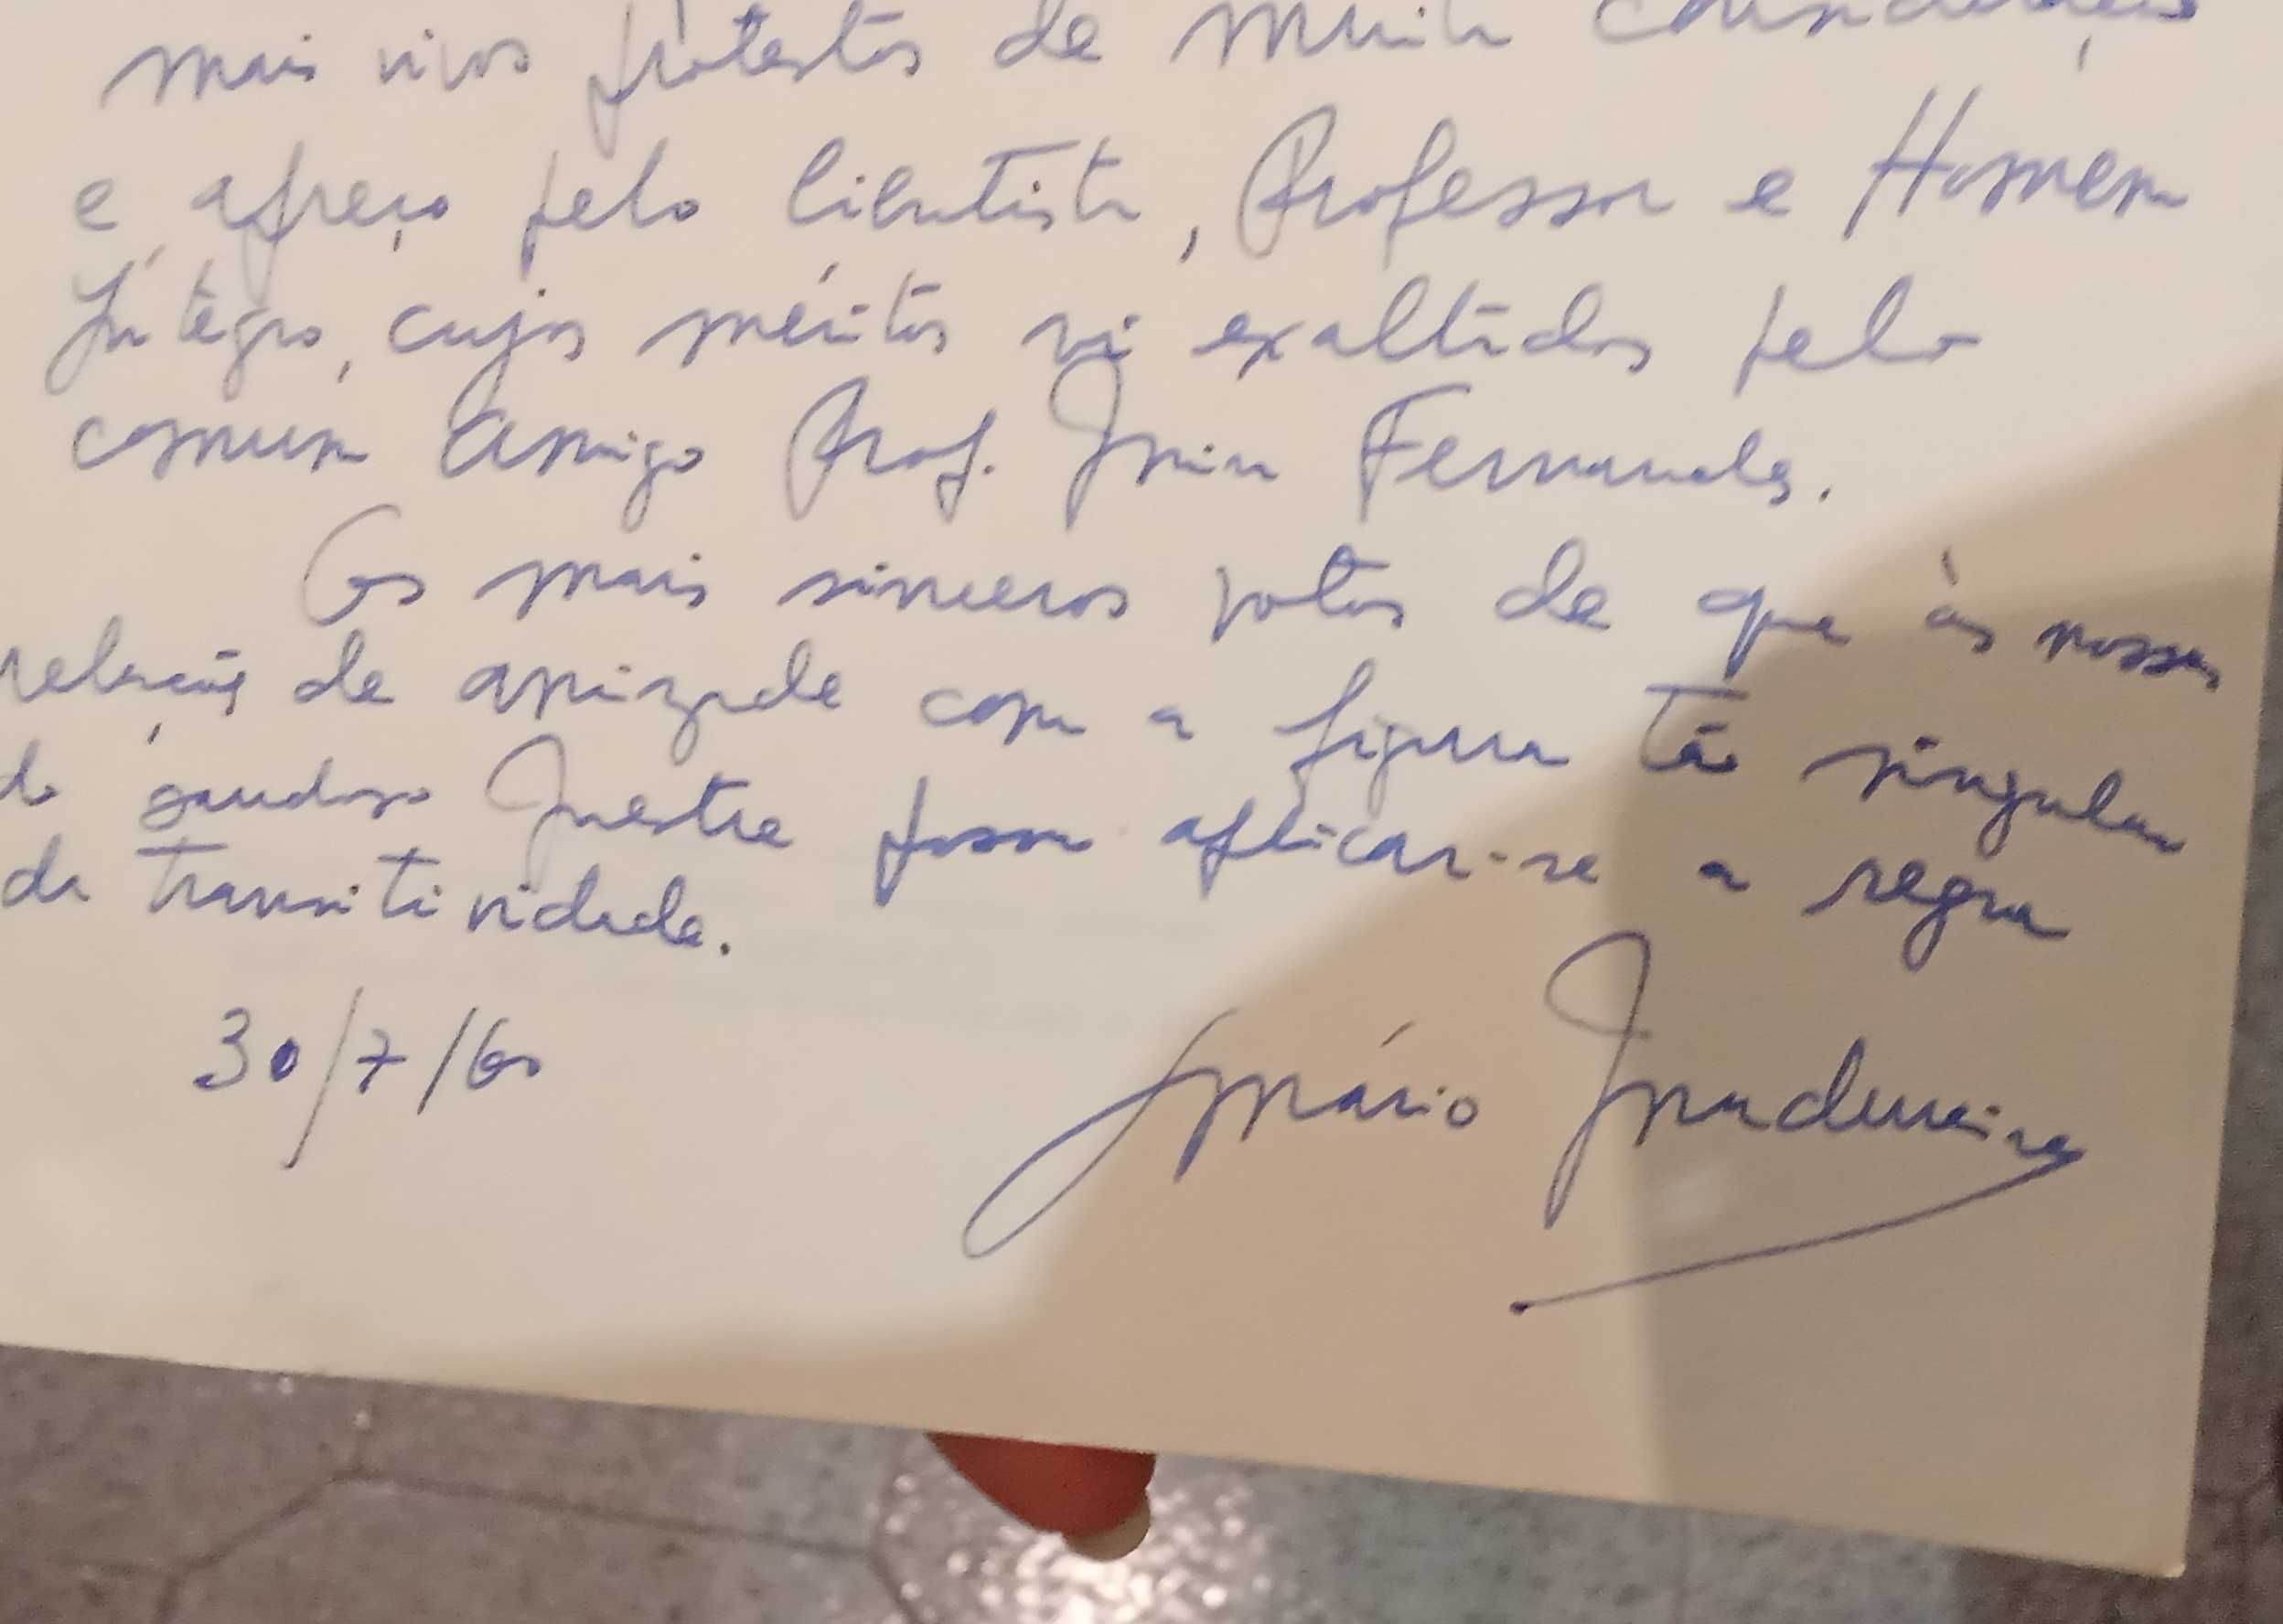 mais vivos protestos de muita consideração
e apreço pelo Cientista, Professor e Homem
Íntegro, cujos méritos vi exaltados pelo
comum amigo Prof. Fernandes.
Os mais sinceros votos de que às nossas
relações de amizade com a figura tão singular
do saudoso Mestre possa aplicar-se a regra
da transitividade.
30/7/60
Mário Madureira